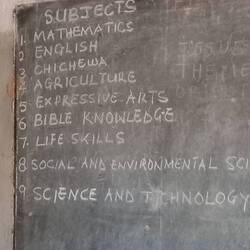 SUBJECTS
1. MATHEMATICS
2 ENGLISH
3 CHICHEWA
4 AGRICULTURE
5 EXPRESSIVE ARTS
6 BIBLE KNOWLEDGE
7. LIFE SKILLS
8. SOCIAL AND ENVIRONMENTAL SCI
9. SCIENCE AND TECHNOLOGY